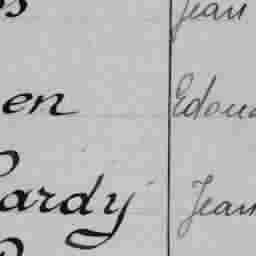 Jean
en Edoua
ardy Jean